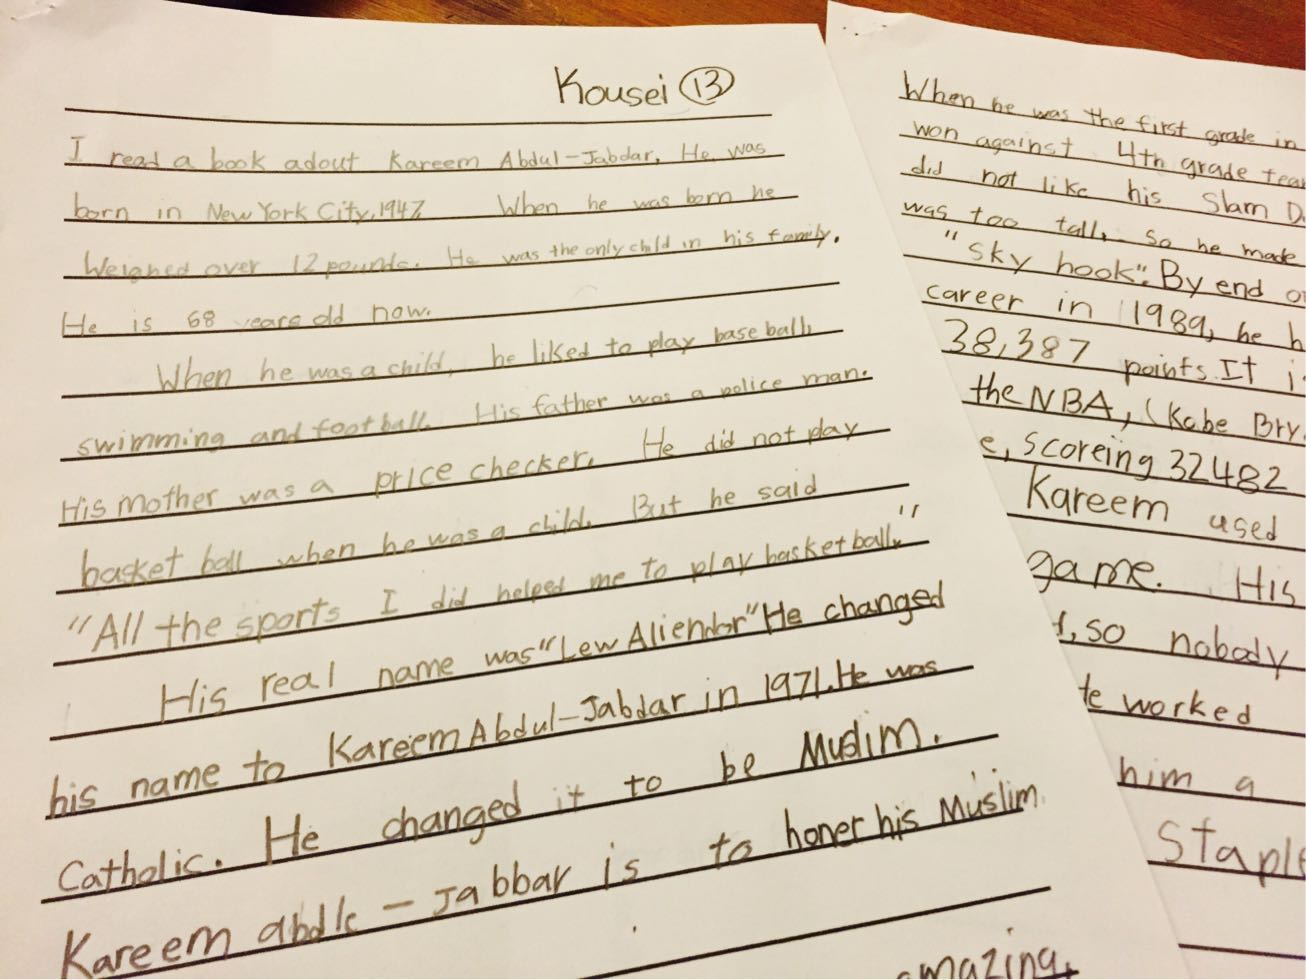 Kousei 13
I read a book adout Kareem Abdul-Jabdar. He was
born in New York City, 1947. When he was born he
Weighed over 12 pounds. He was the only child in his family.
He is 68 years old now.
When he was a child, he liked to play base ball,
swimming and foot ball. His father was a police man.
His mother was a price checker. He did not play
basket ball when he was a child. But he said
"All the sports I did helped me to play basket ball."
His real name was "Lew Aliendor" He changed
his name to Kareem Abdul-Jabdar in 1971. He was
Catholic. He changed it to be Muslim.
Kareem abdle-Jabbar is to honer his Muslim.
amazing.
When he was the first grade in
won against 4th grade
did not like his Slam
was too tall, so he made
"sky hook". By end
career in 1989, he
38,387 points. It
the NBA, (Kobe
scoreing 32482
Kareem used
game. His
so nobody
worked
him a